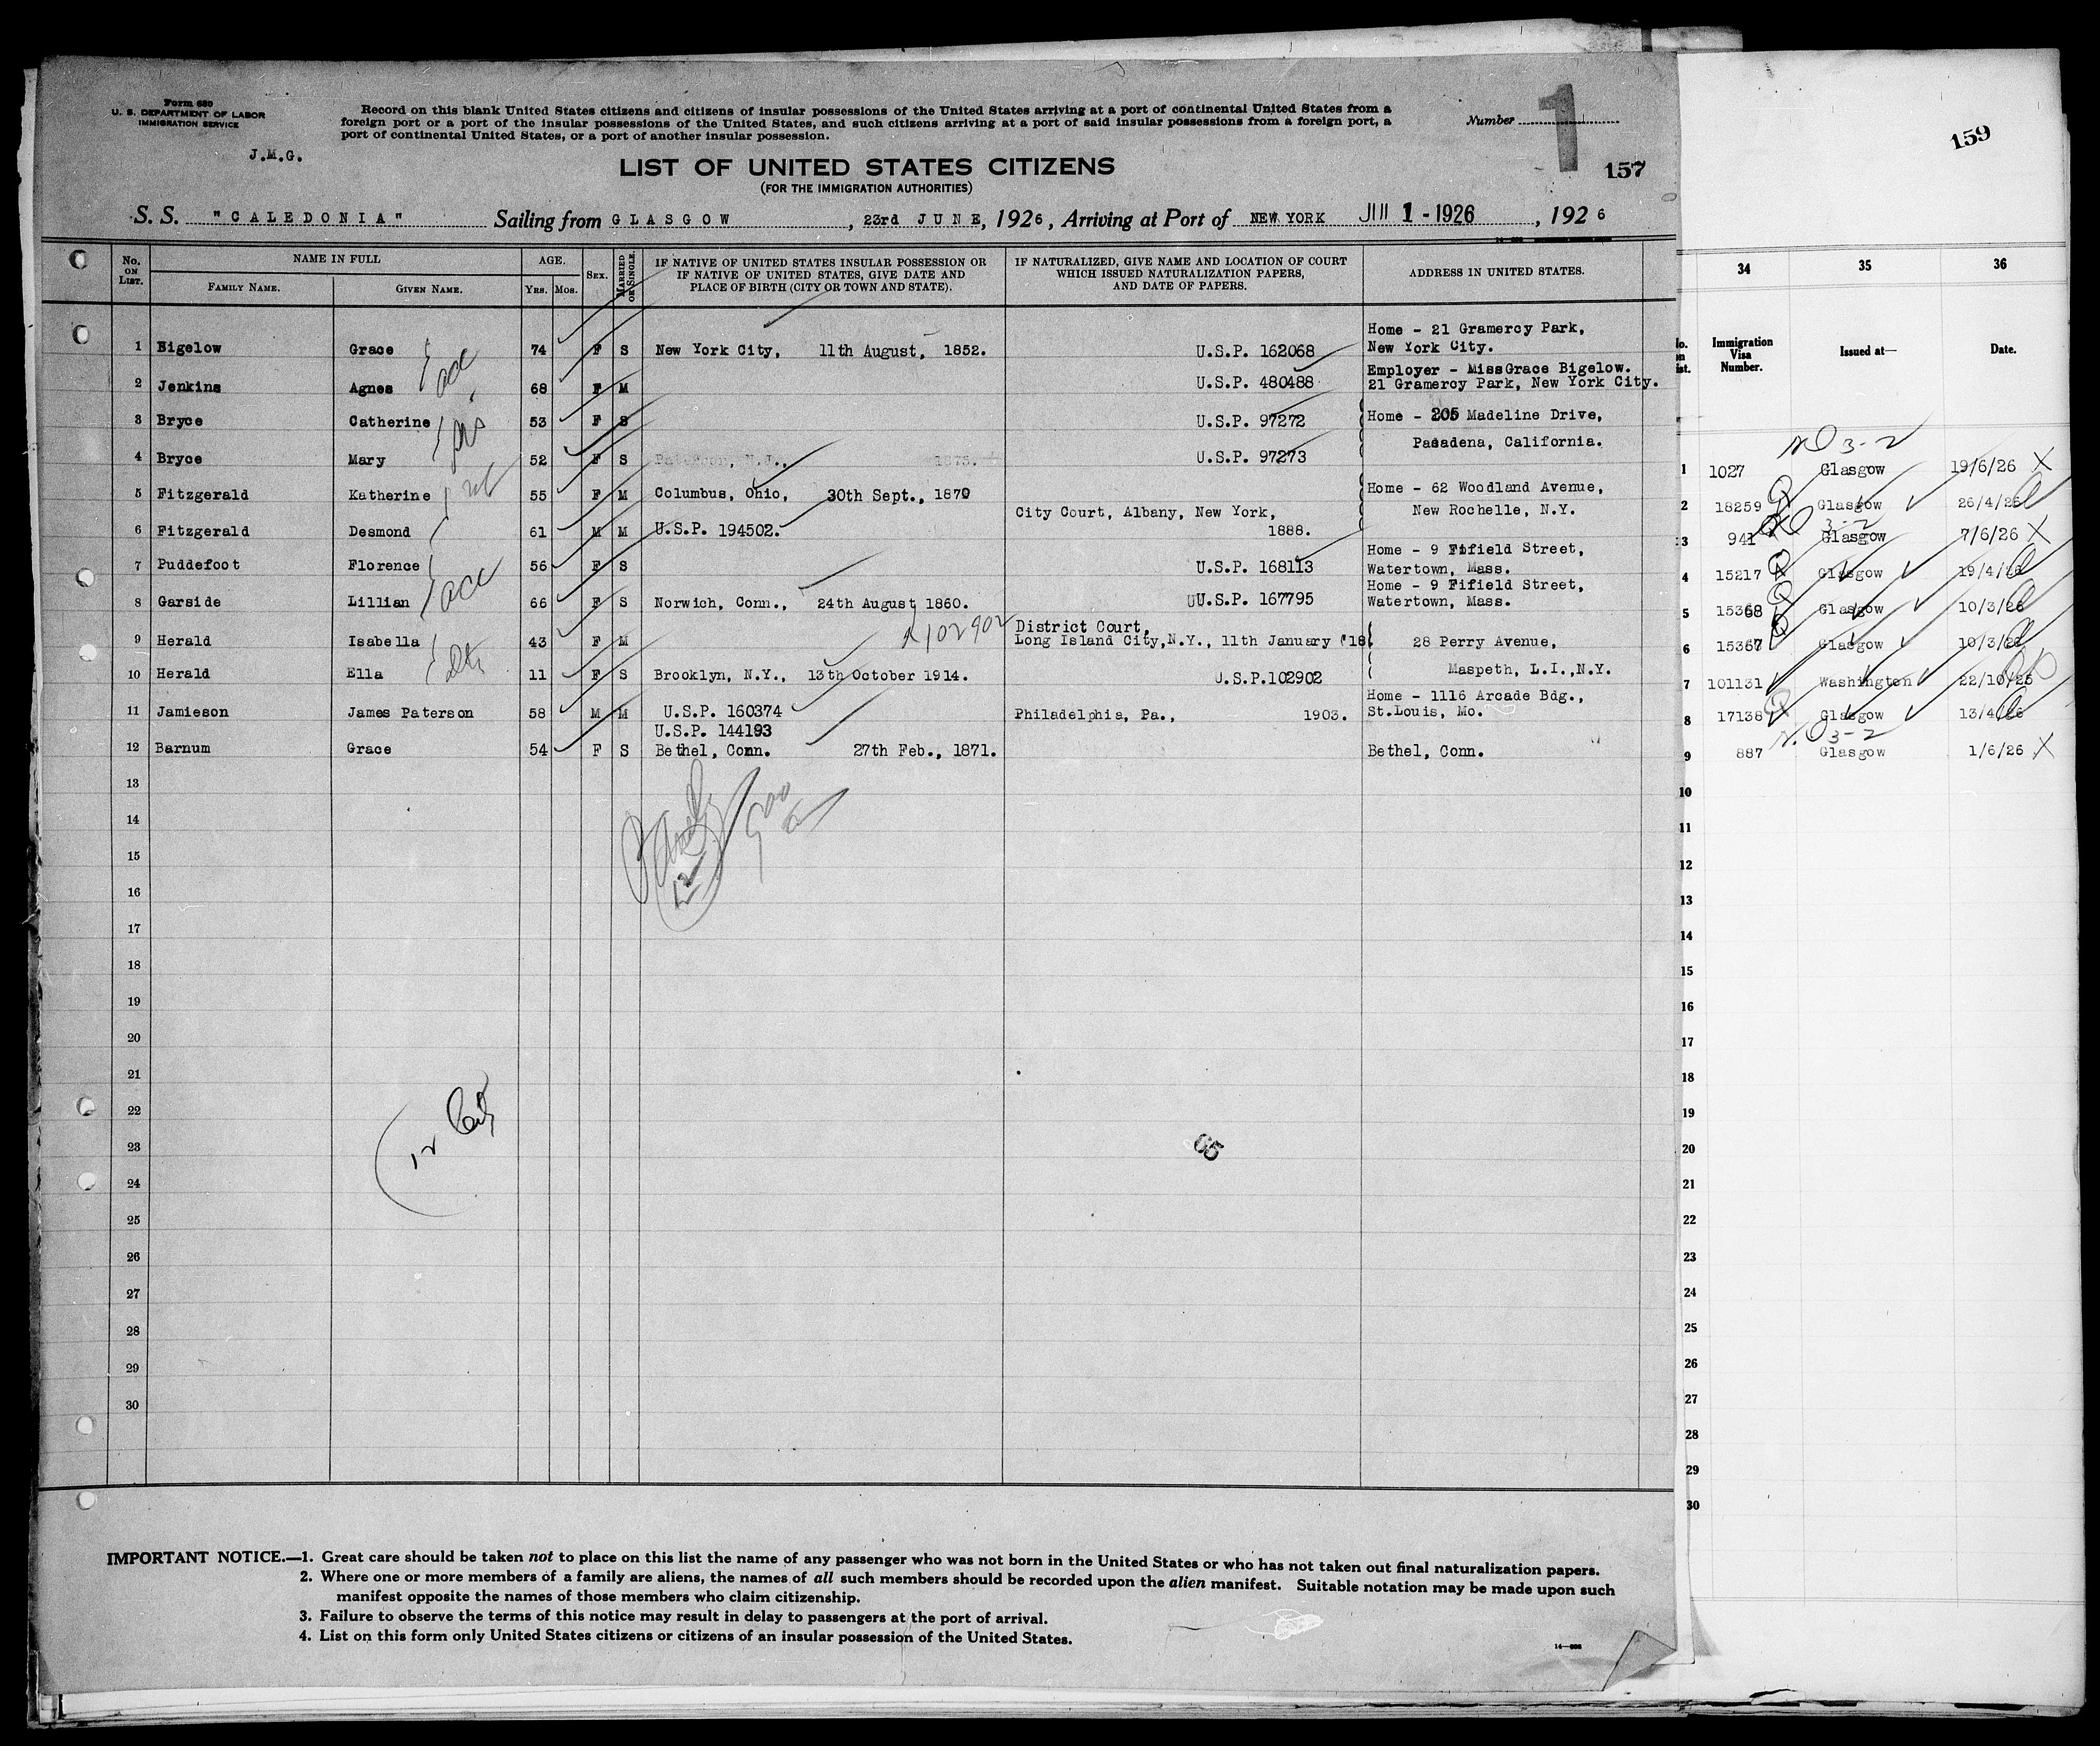 Form 630
U. S. DEPARTMENT OF LABOR
IMMIGRATION SERVICE
J.M.G.
Record on this blank United States citizens and citizens of insular possessions of the United States arriving at a port of continental United States from a
foreign port or a port of the insular possessions of the United States, and such citizens arriving at a port of said insular possessions from a foreign port, a
port of continental United States, or a port of another insular possession.
Number 1
157
LIST OF UNITED STATES CITIZENS
(FOR THE IMMIGRATION AUTHORITIES)
S. S. "CALEDONIA" Sailing from GLASGOW, 23rd JUNE, 1926, Arriving at Port of NEW YORK 1 - 1926, 1926
No. ON LIST. NAME IN FULL AGE. SEX. MARRIED OR SINGLE. IF NATIVE OF UNITED STATES INSULAR POSSESSION OR IF NATIVE OF UNITED STATES, GIVE DATE AND PLACE OF BIRTH (CITY OR TOWN AND STATE). IF NATURALIZED, GIVE NAME AND LOCATION OF COURT WHICH ISSUED NATURALIZATION PAPERS, AND DATE OF PAPERS. ADDRESS IN UNITED STATES.
FAMILY NAME. GIVEN NAME. YRS. MOS.
Home - 21 Gramercy Park,
1 Bigelow Grace 74 F S New York City, 11th August, 1852. U.S.P. 162068 New York City.
Employer - MissGrace Bigelow.
2 Jenkins Agnes 68 F M U.S.P. 480488 21 Gramercy Park, New York City.
3 Bryce Catherine 53 F S U.S.P. 97272 Home - 205 Madeline Drive,
Pasadena, California.
4 Bryce Mary 52 F S Paterson, N.J., 1873. U.S.P. 97273
5 Fitzgerald Katherine 55 F M Columbus, Ohio, 30th Sept., 1870 Home - 62 Woodland Avenue,
City Court, Albany, New York, New Rochelle, N.Y.
6 Fitzgerald Desmond 61 M M U.S.P. 194502. 1888.
Home - 9 Fifield Street,
7 Puddefoot Florence 56 F S U.S.P. 168113 Watertown, Mass.
Home - 9 Fifield Street,
8 Garside Lillian 66 F S Norwich, Conn., 24th August 1860. UU.S.P. 167795 Watertown, Mass.
102902 District Court,
9 Herald Isabella 43 F M Long Island City,N.Y., 11th January '18 28 Perry Avenue,
Maspeth, L.I.,N.Y.
10 Herald Ella 11 F S Brooklyn, N.Y., 13th October 1914. U.S.P.102902
Home - 1116 Arcade Bdg.,
11 Jamieson James Paterson 58 M M U.S.P. 160374 Philadelphia, Pa., 1903. St.Louis, Mo.
U.S.P. 144193
12 Barnum Grace 54 F S Bethel, Conn. 27th Feb., 1871. Bethel, Conn.
13
14
15
16
17
18
19
20
21
22
23
24
25
26
27
28
29
30
65
IMPORTANT NOTICE.—1. Great care should be taken not to place on this list the name of any passenger who was not born in the United States or who has not taken out final naturalization papers.
2. Where one or more members of a family are aliens, the names of all such members should be recorded upon the alien manifest. Suitable notation may be made upon such
manifest opposite the names of those members who claim citizenship.
3. Failure to observe the terms of this notice may result in delay to passengers at the port of arrival.
4. List on this form only United States citizens or citizens of an insular possession of the United States.
159
34 35 36
Immigration Visa Number. Issued at— Date.
3-2
1 1027 Glasgow 19/6/26 X
2 18259 Glasgow 26/4/26
3-2
3 941 Glasgow 7/6/26 X
4 15217 Glasgow 19/4/26
5 15368 Glasgow 10/3/26
6 15367 Glasgow 10/3/26
7 101131 Washington 22/10/25
8 17138 Glasgow 13/4/26
3-2
9 887 Glasgow 1/6/26 X
10
11
12
13
14
15
16
17
18
19
20
21
22
23
24
25
26
27
28
29
30